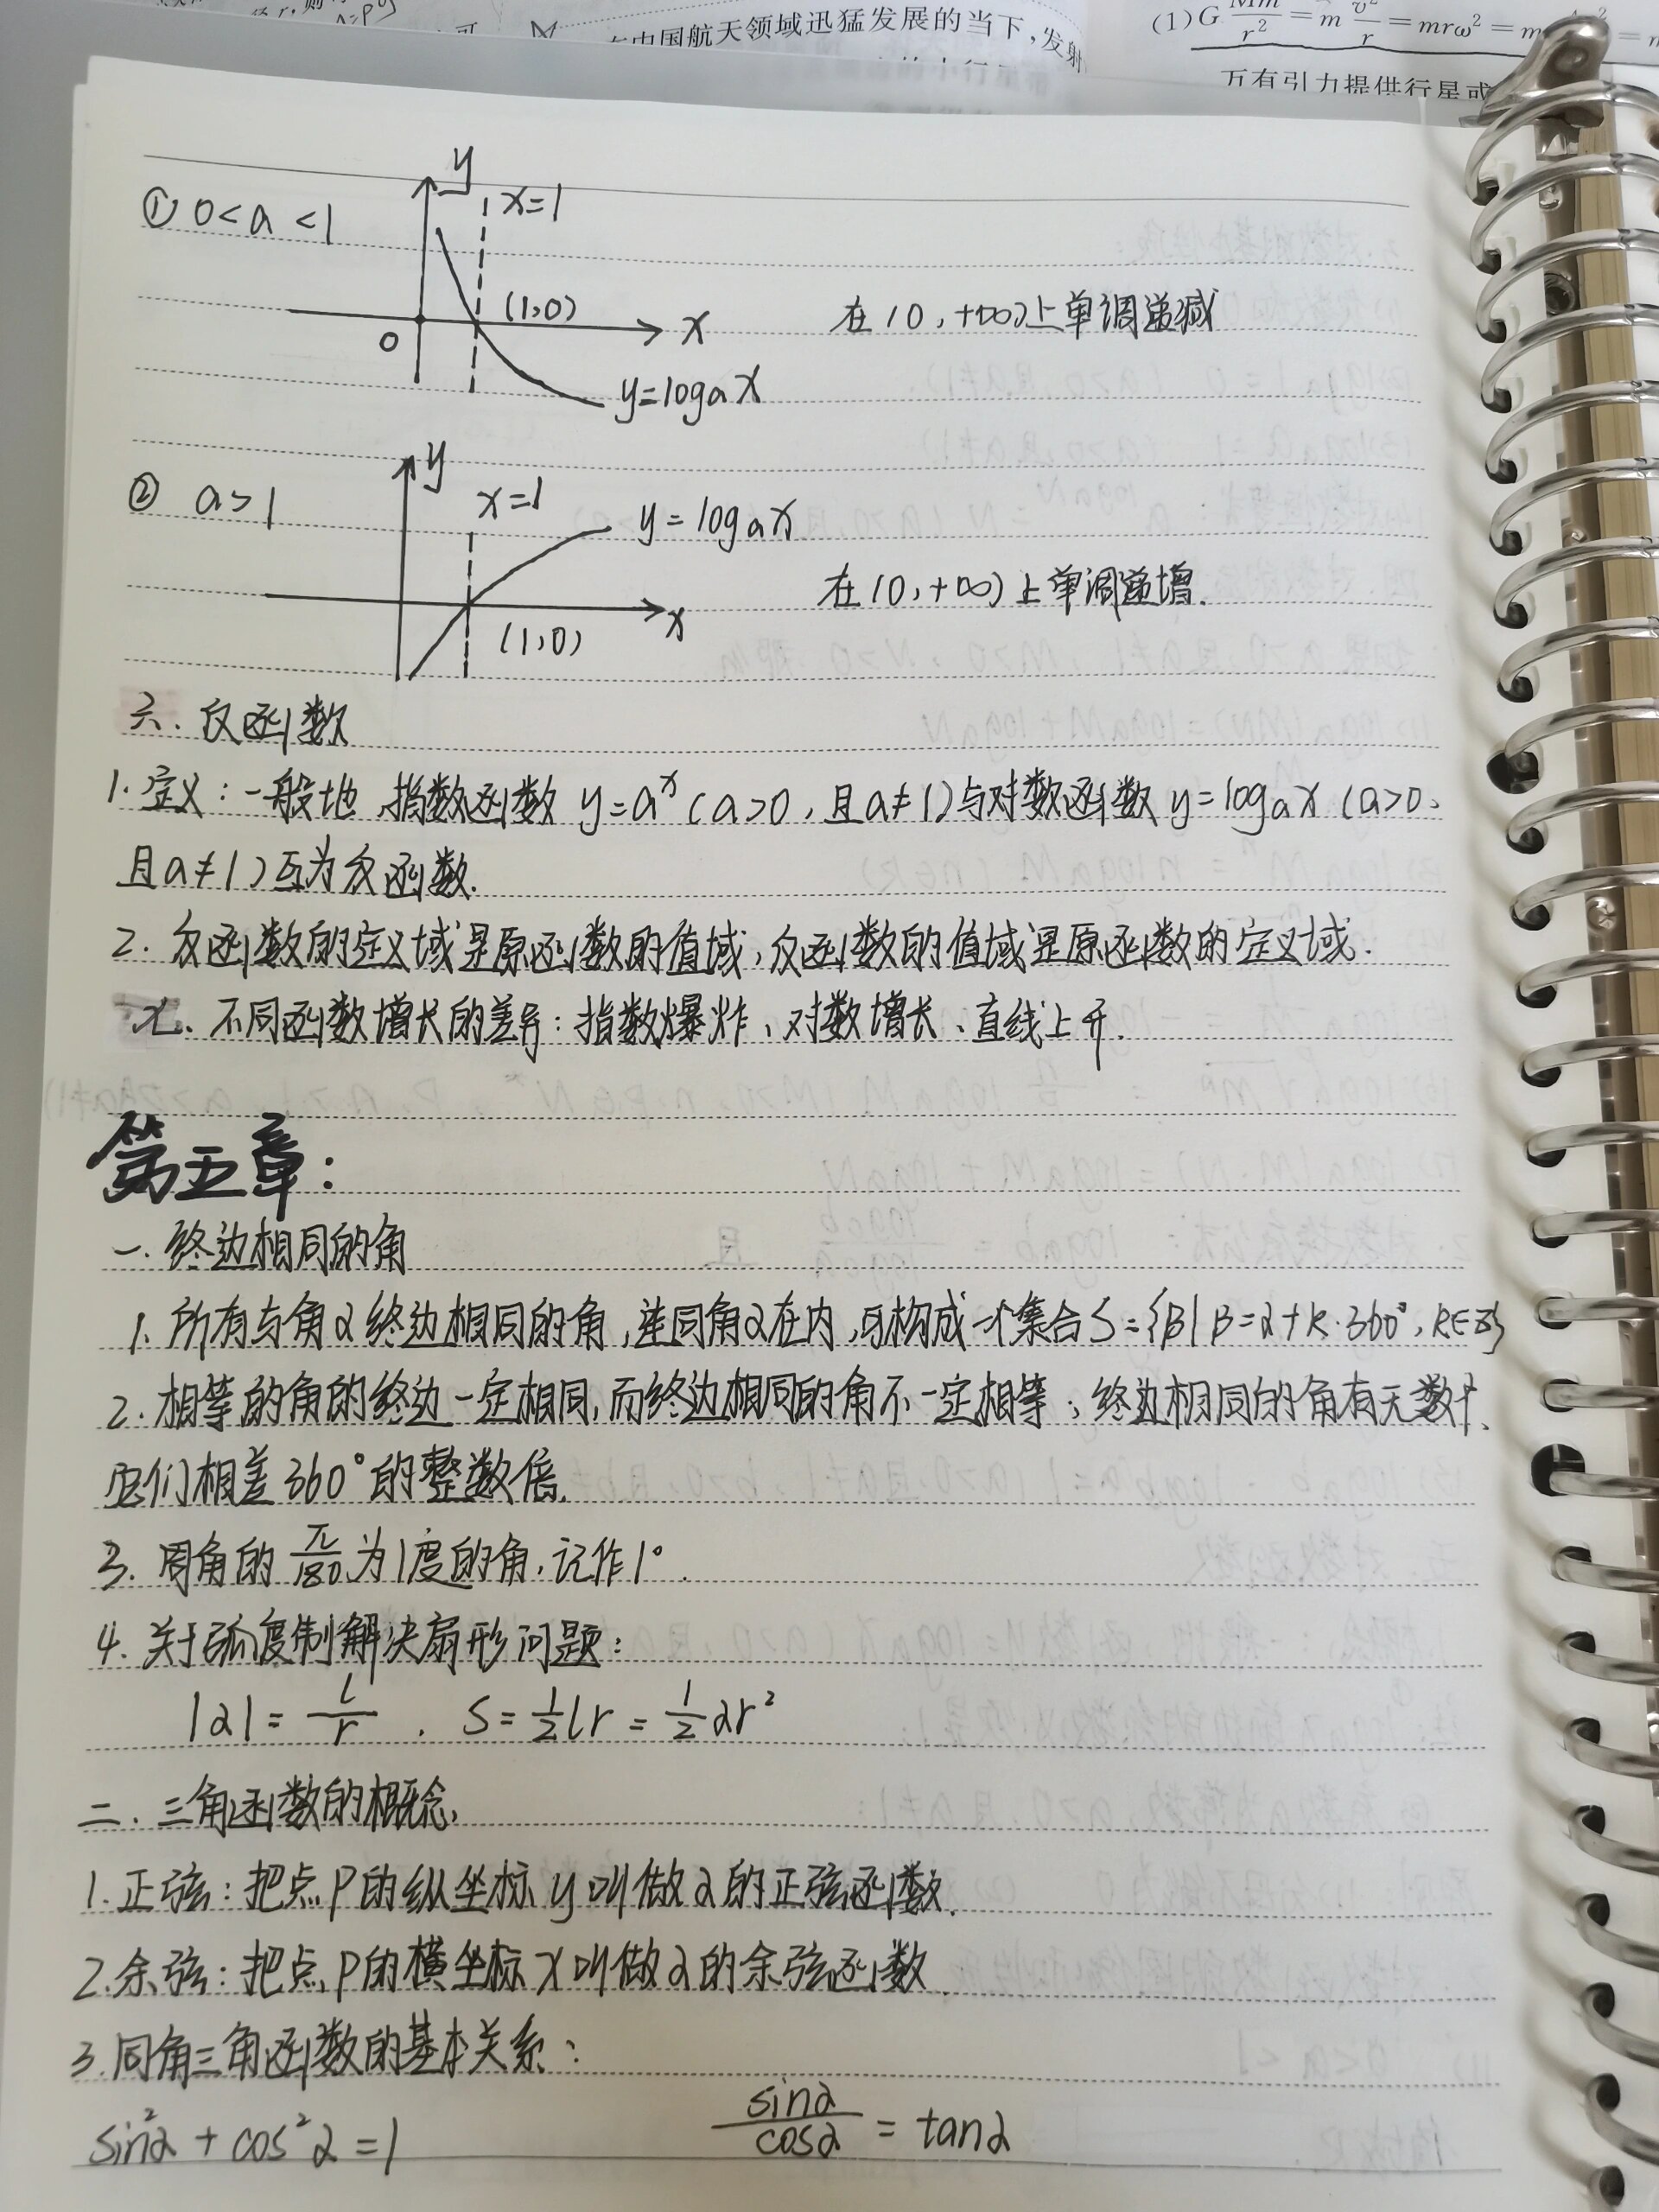 在中国航天领域迅猛发展的当下,发射
(1) G Mm/r² = m v²/r = mrω² = m
万有引力提供行星或
① 0<a<1
y
x=1
(1,0)
0
x
y=logₐx
在(0,+∞)上单调递减
② a>1
y
x=1
y=logₐx
(1,0)
x
在(0,+∞)上单调递增.
六.反函数
1.定义:一般地,指数函数 y=aˣ(a>0,且a≠1)与对数函数 y=logₐx (a>0,
且a≠1)互为反函数.
2.反函数的定义域是原函数的值域,反函数的值域是原函数的定义域.
七.不同函数增长的差异:指数爆炸、对数增长、直线上升.
第五章:
一.终边相同的角
1.所有与角α终边相同的角,连同角α在内,可构成一个集合S={β|β=α+k·360°,k∈Z}
2.相等的角的终边一定相同,而终边相同的角不一定相等;终边相同的角有无数个,
它们相差360°的整数倍.
3.周角的 π/180 为1度的角,记作1°.
4.关于弧度制解决扇形问题:
|α|=l/r . S=1/2lr=1/2αr²
二.三角函数的概念,
1.正弦:把点P的纵坐标y叫做α的正弦函数.
2.余弦:把点P的横坐标x叫做α的余弦函数.
3.同角三角函数的基本关系:
sin²α+cos²α=1 sinα/cosα=tanα